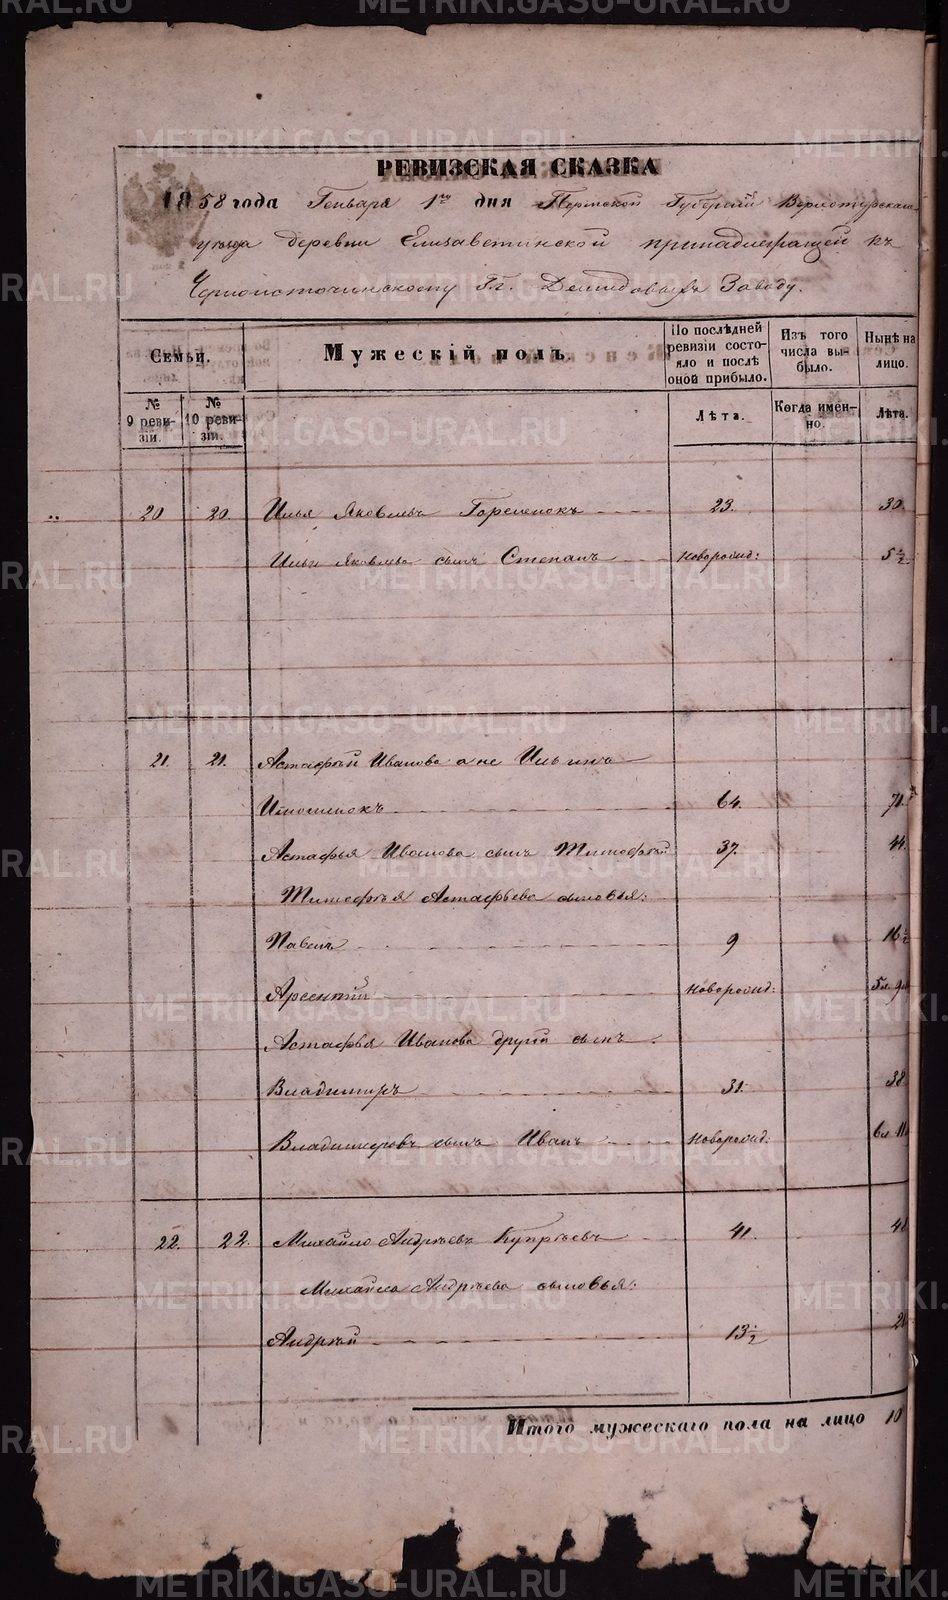 РЕВИЗСКАЯ СКАЗКА
1858 года Генваря 1го дня Пермской Губернiи Верхотурскаго
уѣзда деревни Елизаветинской принадлежащей къ
Черноисточинскому Гг. Демидовыхъ Заводу.
Семьи. Мужескiй полъ. По послѣдней ревизiи состояло и послѣ оной прибыло. Изъ того числа выбыло. Нынѣ на лицо.
№ 9 ревизiи. № 10 ревизiи. Лѣта. Когда именно. Лѣта.
20 20. Илья Яковлевъ 23. 30.
Ильи Яковлева сынъ Степанъ новорожд: 5 1/2
21. 21. Астафiй Иванова а не Ильинъ
64. 71.
Астафья Иванова сынъ Тимофѣй 37. 44.
Тимофѣя Астафьева сыновья:
Павелъ 9 16 1/2
Арсентiй новорожд: 5л 9м
Астафья Иванова другой сынъ
Владимиръ 31. 38.
Владимiровъ сынъ Иванъ новорожд: 6л 11м
22. 22. Михайло Андрѣевъ Купрѣевъ 41. 48
Михайла Андрѣева сыновья:
Андрѣй 13 1/2
Итого мужескаго пола на лицо 10
METRIKI.GASO-URAL.RU